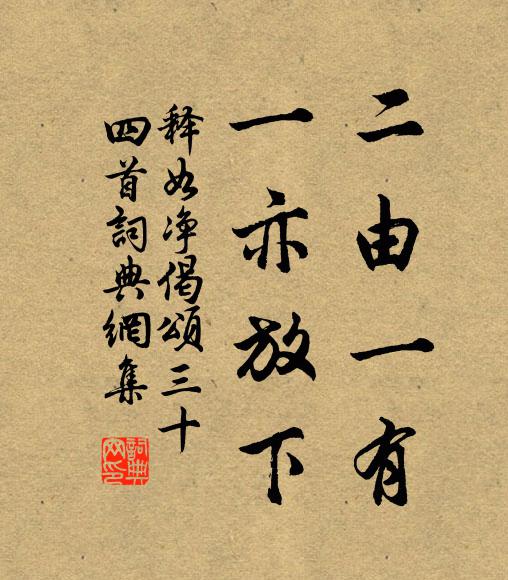 二由一有
一亦放下
释如净偈颂三十
四首詞典網集
詞典
网印